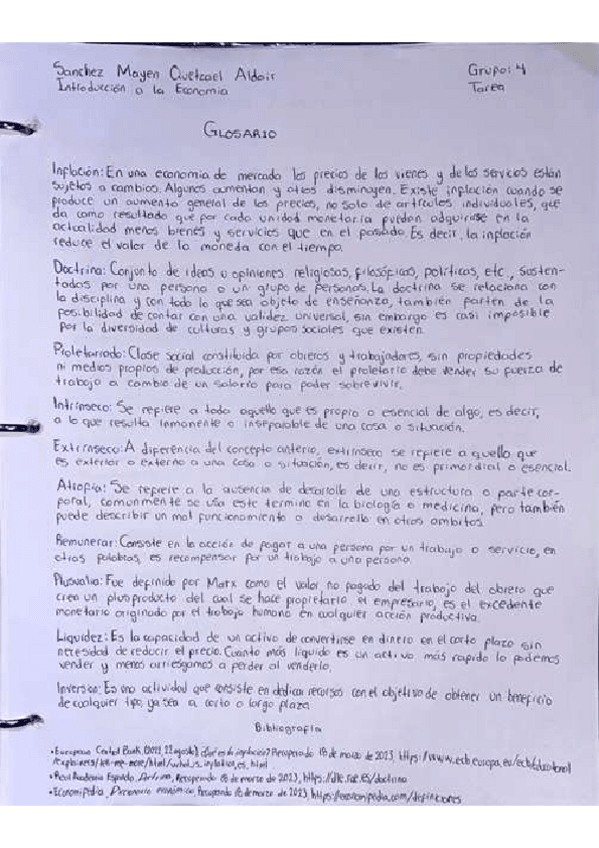 Sanchez Mayen Quetzael Aldair Grupo: 4
Introducción a la Economia Tarea
GLOSARIO
Inflación: En una economia de mercado los precios de los vienes y de los servicios están
sujetos a cambios. Algunos aumentan y otros disminuyen. Existe inflación cuando se
produce un aumento general de los precios, no solo de artículos individuales, que
da como resultado que por cada unidad monetaria puedan adquirirse en la
actualidad menos bienes y servicios que en el pasado. Es decir, la inflación
reduce el valor de la moneda con el tiempo.
Doctrina: Conjunto de ideas u opiniones religiosas, filosóficas, políticas, etc., susten-
tadas por una persona o un grupo de personas. La doctrina se relaciona con
la disciplina y con todo lo que sea objeto de enseñanza, también parten de la
posibilidad de contar con una validez universal, sin embargo es casi imposible
por la diversidad de culturas y grupos sociales que existen.
Proletariado: Clase social constituida por obreros y trabajadores, sin propiedades
ni medios propios de producción, por esa razón el proletario debe vender su fuerza de
trabajo a cambio de un salario para poder sobrevivir.
Intrínseco: Se refiere a todo aquello que es propio o esencial de algo, es decir,
a lo que resulta inmanente o inseparable de una cosa o situación.
Extrínseco: A diferencia del concepto anterior, extrínseco se refiere a aquello que
es exterior o externo a una cosa o situación, es decir, no es primordial o esencial.
Atrofia: Se refiere a la ausencia de desarrollo de una estructura o parte cor-
poral, comunmente se usa este termino en la biología o medicina, pero también
puede describir un mal funcionamiento o desarrollo en otros ambitos.
Remunerar: Consiste en la acción de pagar a una persona por un trabajo o servicio, en
otras palabras, es recompensar por un trabajo a una persona.
Plusvalia: Fue definido por Marx como el valor no pagado del trabajo del obrero que
crea un plusproducto del cual se hace propietario el empresario, es el excedente
monetario originado por el trabajo humano en cualquier acción productiva.
Liquidez: Es la capacidad de un activo de convertirse en dinero en el corto plazo sin
necesidad de reducir el precio. Cuanto más líquido es un activo más rapido lo podemos
vender y menos arriesgamos a perder al venderlo.
Inversión: Es una actividad que consiste en dedicar recursos con el objetivo de obtener un beneficio
de cualquier tipo, ya sea a corto o largo plazo
Bibliografía
• European Central Bank. Recuperado 18 de marzo de 2023, https://www.ecb.europa.eu/ecb/educational
/explainers/tell-me-more/html/what_is_inflation.es.html
• Real Academia Española, Recuperado 18 de marzo de 2023, https://dle.rae.es/doctrina
• Economipedia, Diccionario económico. Recuperado 18 de marzo de 2023, https://economipedia.com/definiciones